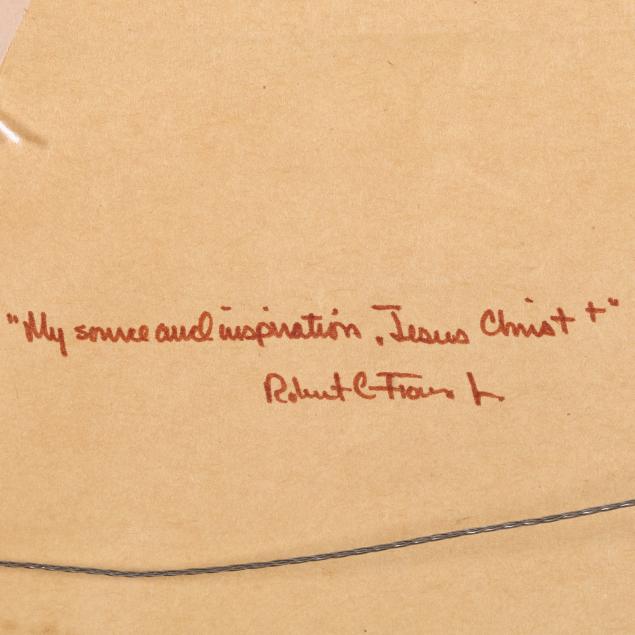 "My source and inspiration, Jesus Christ +"
Robert C Jr.